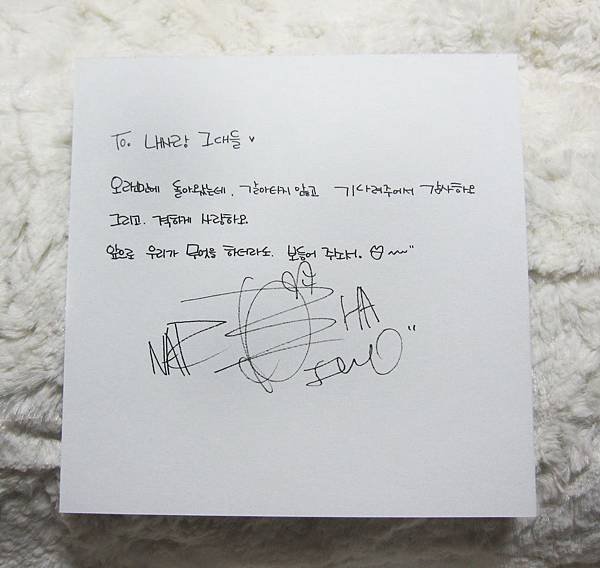 To. 내사랑 그대들 ♥
오랜만에 돌아왔는데, 갈아타지 않고 기다려주어서 감사하오
그리고, 격하게 사랑하오.
앞으로 우리가 무엇을 하더라도. 보듬어 주고서.
HA